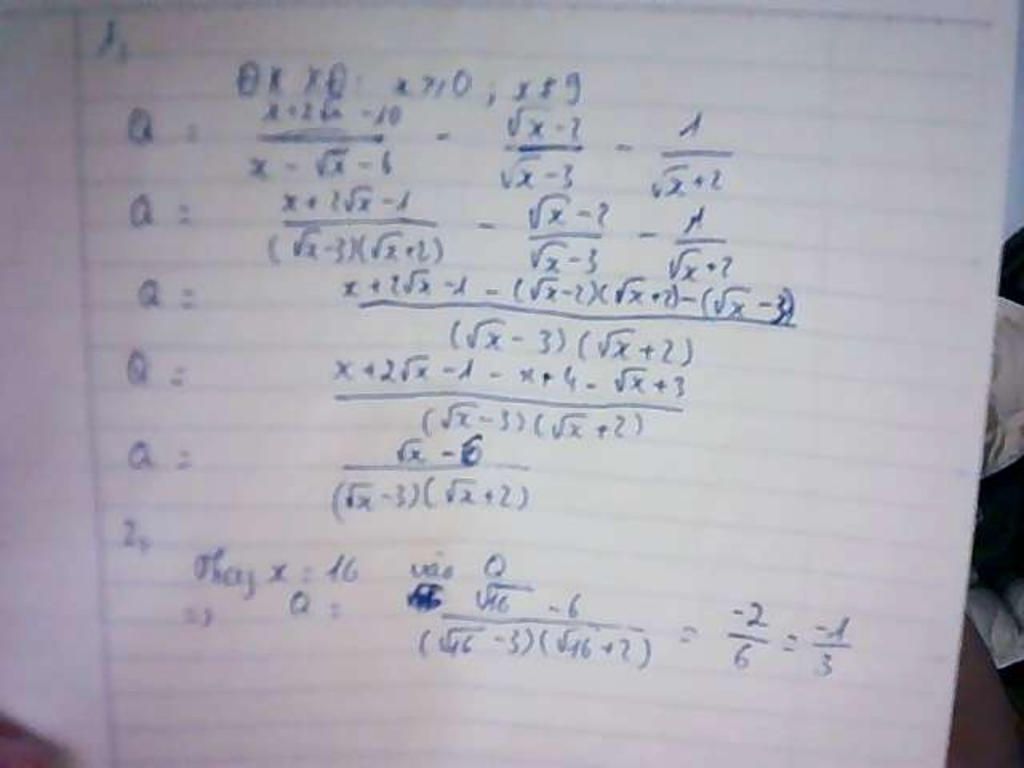 1,
ĐK XĐ: x ≥ 0; x ≠ 9
Q = (x+2√x -10)/(x - √x - 6) - (√x-2)/(√x-3) - 1/(√x+2)
Q = (x+2√x-1)/((√x-3)(√x+2)) - (√x-2)/(√x-3) - 1/(√x+2)
Q = (x+2√x-1 - (√x-2)(√x+2) - (√x-3))/((√x-3)(√x+2))
Q = (x+2√x-1 - x+4 - √x+3)/((√x-3)(√x+2))
Q = (√x -6)/((√x-3)(√x+2))
2,
Thay x = 16 vào Q
=> Q = (√16 -6)/((√16-3)(√16+2)) = -2/6 = -1/3